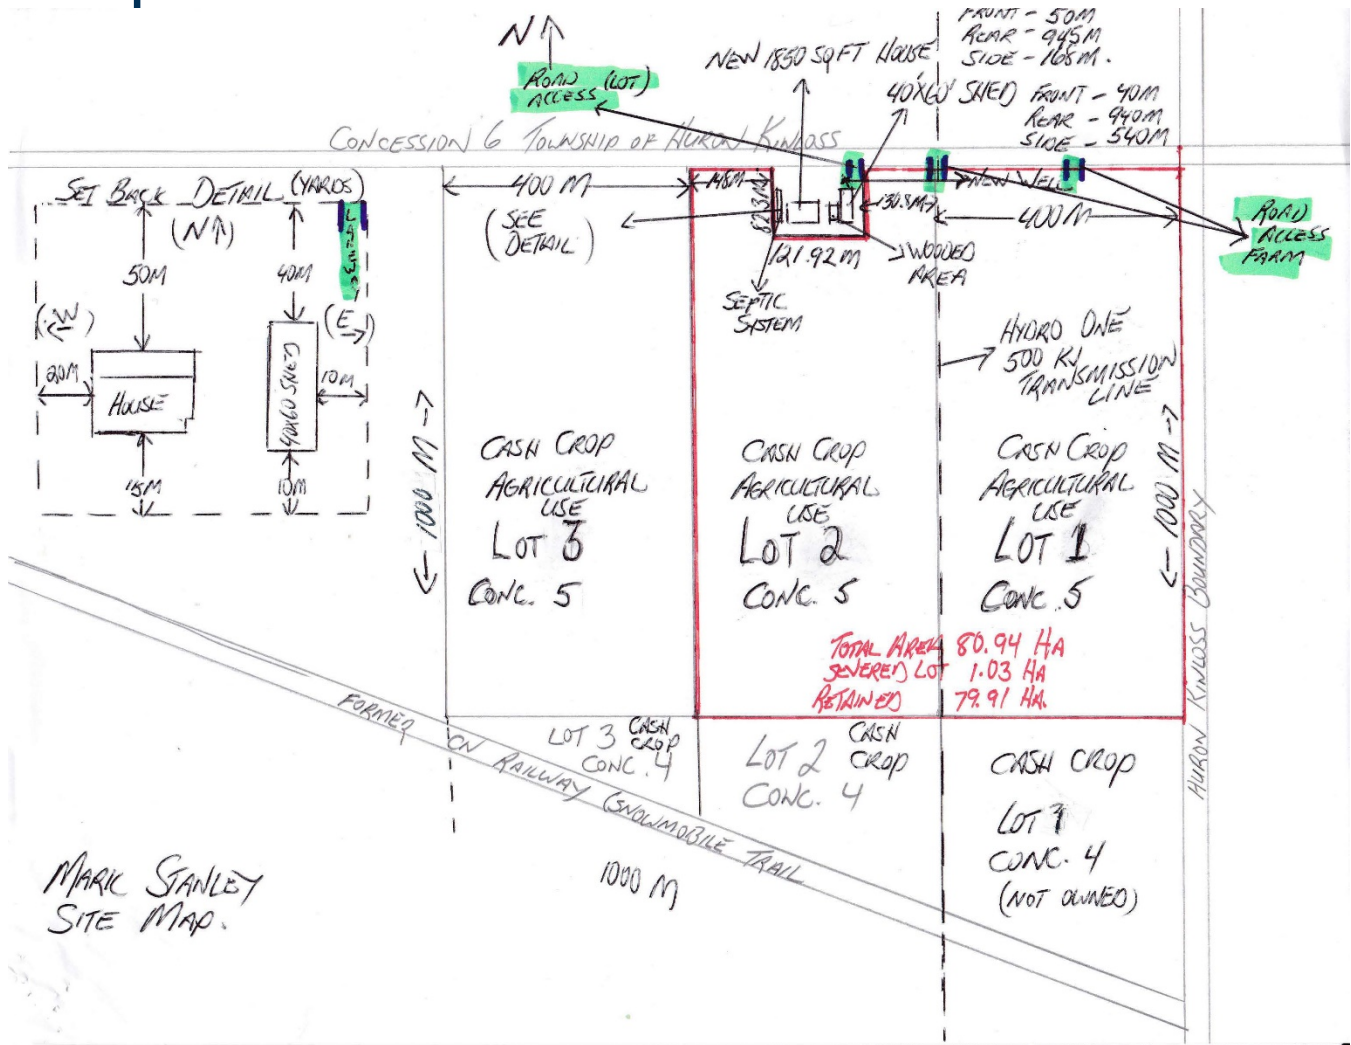 N
FRONT - 50M
REAR - 945M
SIDE - 168M.
NEW 1850 SQFT HOUSE
ROAD (LOT)
ACCESS
40'X60' SHED
FRONT - 40M
REAR - 940M
SIDE - 540M
CONCESSION 6 TOWNSHIP OF HURON KINLOSS
SET BACK DETAIL (YARDS)
(N↑)
LANEWAY
50M
40M
(W)
(E)
20M
HOUSE
40X60 SHED
10M
15M
10M
400 M
(SEE
DETAIL)
148M
82.3M
130.8M
NEW WELL
400M
121.92M
WOODED
AREA
SEPTIC
SYSTEM
ROAD
ACCESS
FARM
HYDRO ONE
500 KV
TRANSMISSION
LINE
← 1000 M →
CASH CROP
AGRICULTURAL
USE
LOT 3
CONC. 5
CASH CROP
AGRICULTURAL
USE
LOT 2
CONC. 5
CASH CROP
AGRICULTURAL
USE
LOT 1
CONC. 5
← 1000 M →
HURON KINLOSS BOUNDARY
TOTAL AREA 80.94 HA
SEVERED LOT 1.03 HA
RETAINED 79.91 HA.
FORMER CN RAILWAY (SNOWMOBILE TRAIL
LOT 3 CASH
CROP
CONC. 4
LOT 2 CASH
CROP
CONC. 4
CASH CROP
LOT 1
CONC. 4
(NOT OWNED)
1000 M
MARK STANLEY
SITE MAP.